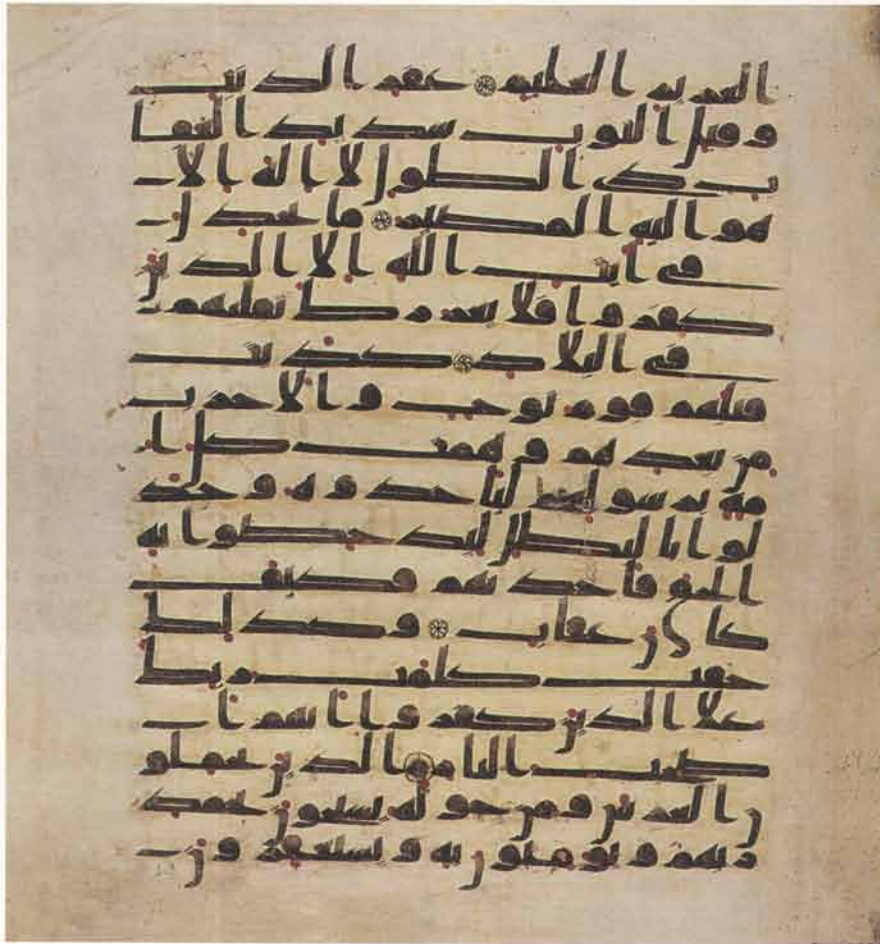 العزيز العليم غفر الذنب
وقبل التوب شديد العقا
ب ذي الطول لا اله الا
هو اليه المصير ما يجدل
في ايت الله الا الذين
كفروا فلا يغررك تقلبهم
في البلاد كذبت
قبلهم قوم نوح والاحزاب
من بعدهم وهمت كل ا
مة برسولهم لياخذوه وجد
لوا بالبطل ليدحضوا به
الحق فاخذتهم فكيف
كان عقاب وكذلك
حقت كلمت ربك
علا الذين كفروا انهم ا
صحب النار الذين يحملو
ن العرش ومن حوله يسبحون بحمد
ربهم ويؤمنون به ويستغفرون